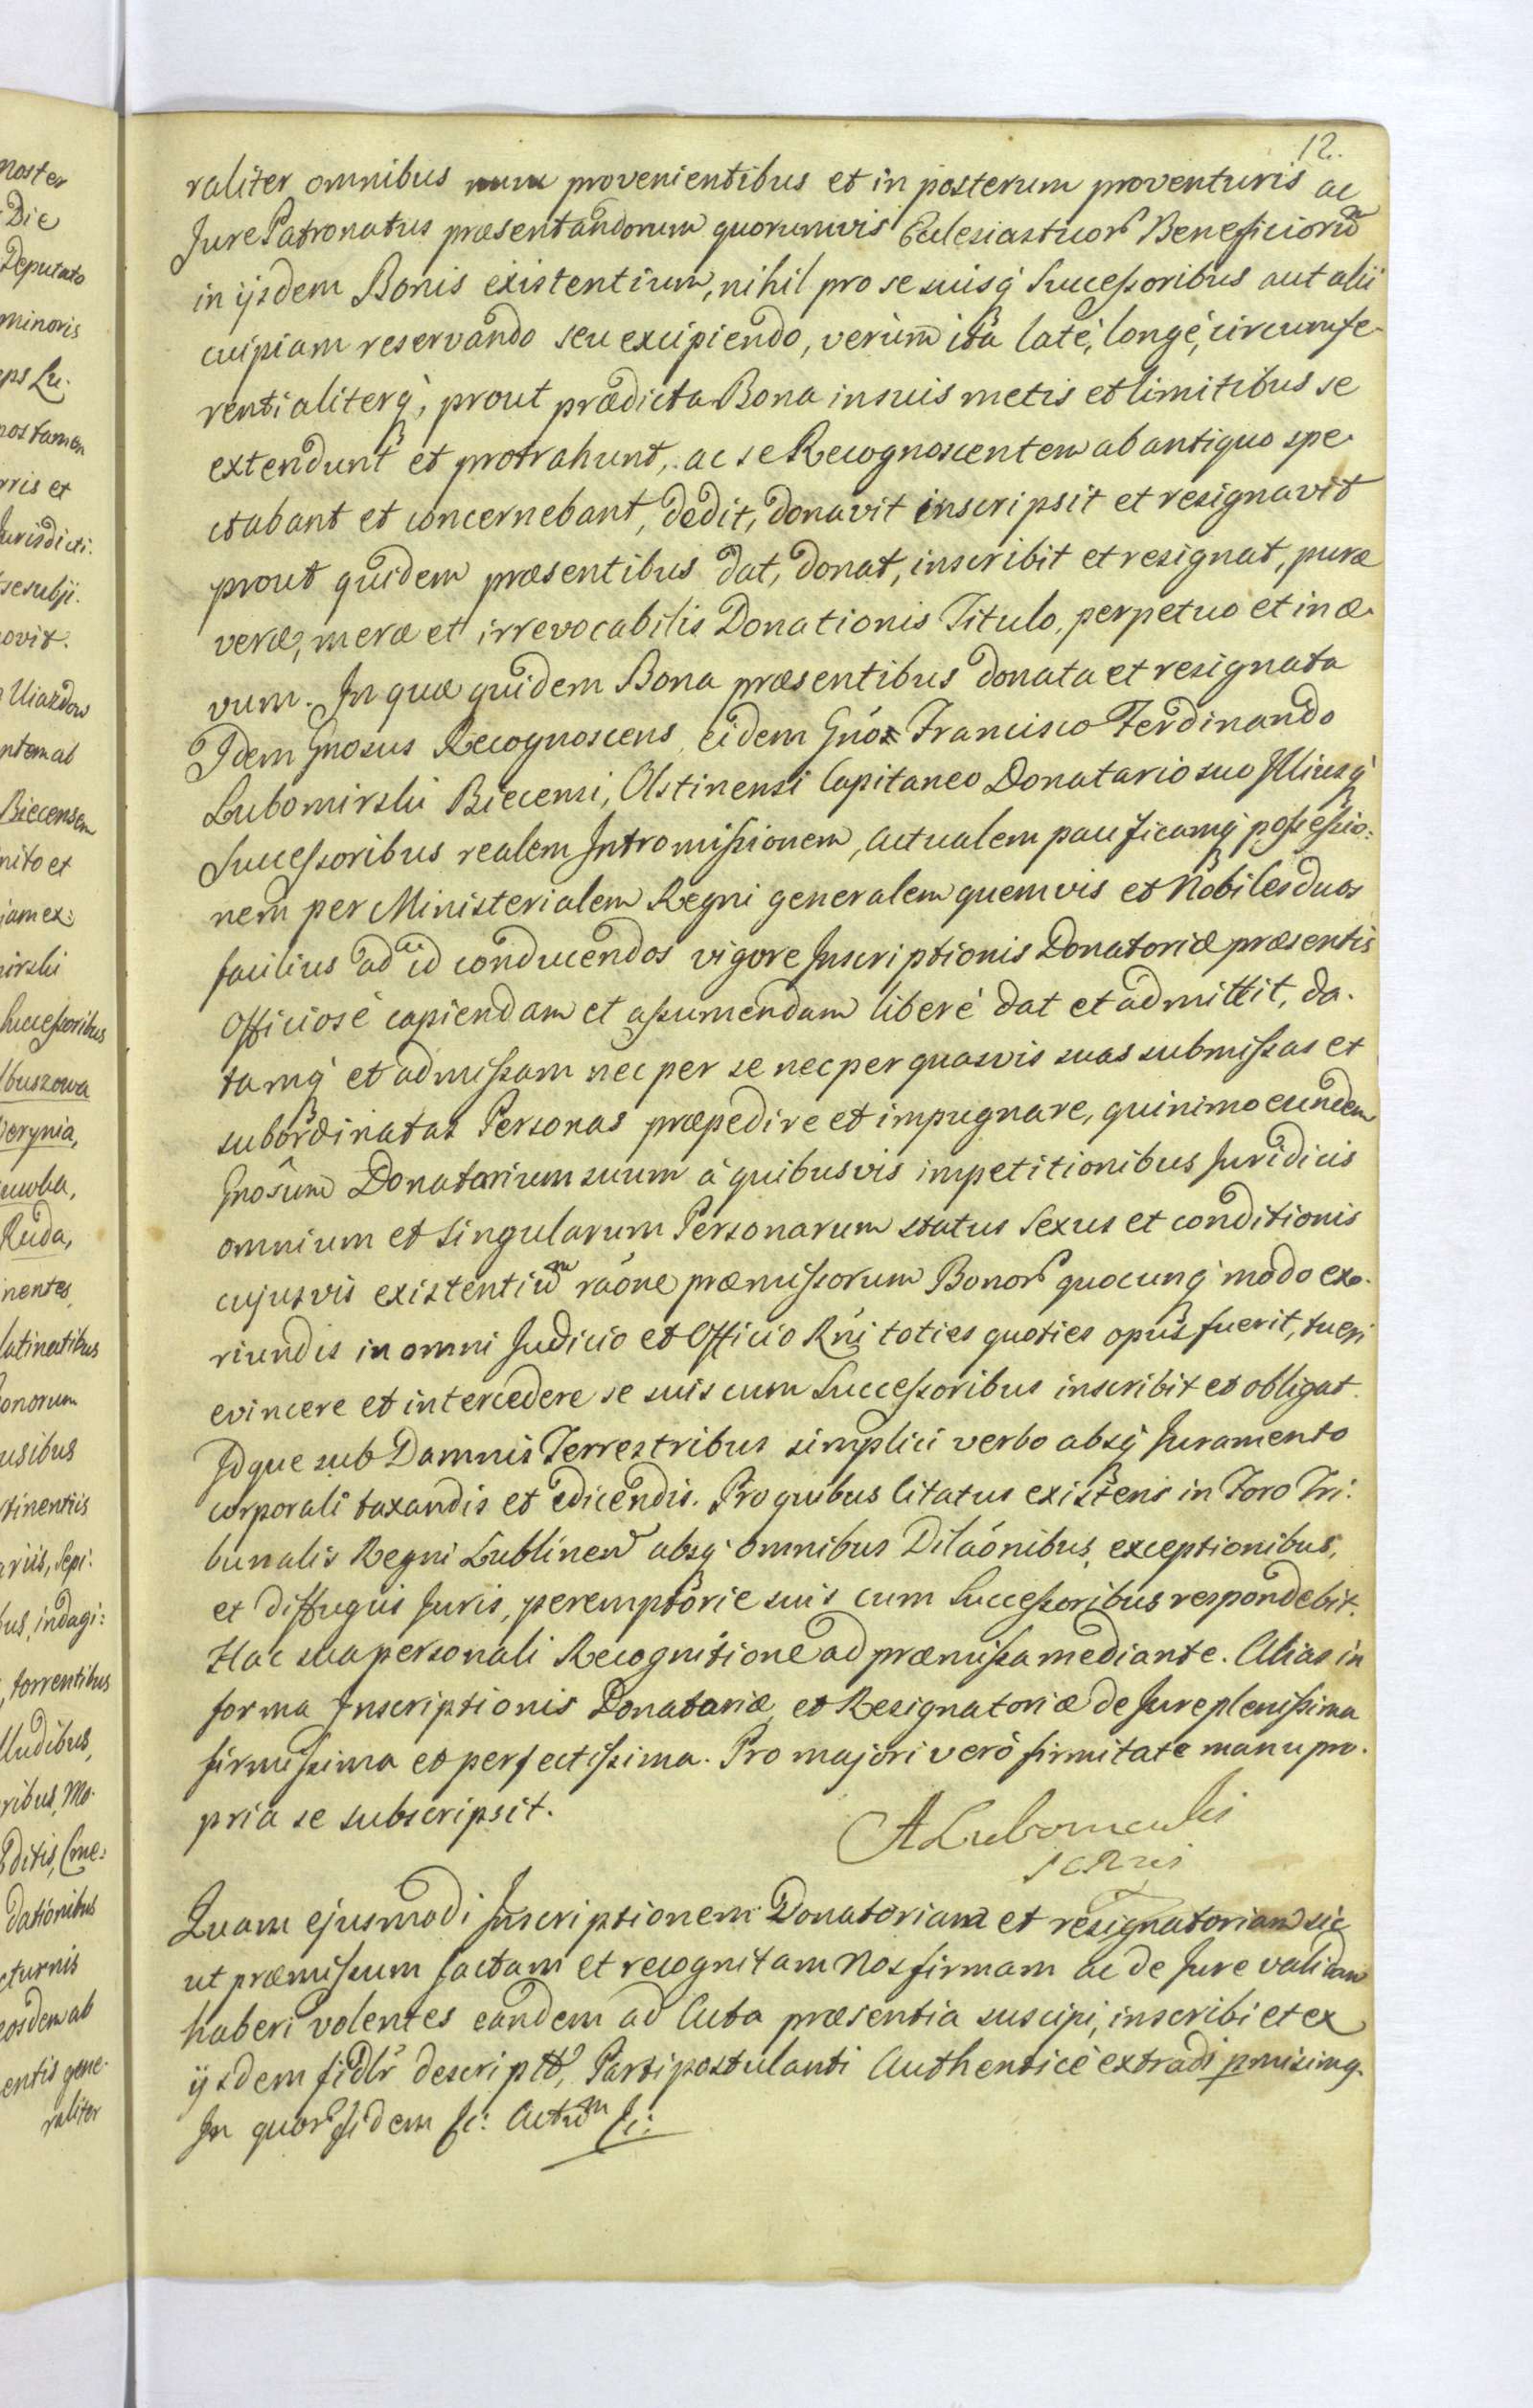 noster
Die
Deputato
minoris
eps Lu.
nostamen
rris et
Jurisdicti.
se subji.
novit.
Uiazdow
ntem ab
Biecensem
nito et
jam ex:
mirski
Successoribus
lbuszowa
erynia,
uwba,
Ruda,
nentes
latinatibus
onorum
usibus
tinentiis
ariis, Sepi:
bus, indagi:
, torrentibus
lludibus,
ribus, Mo.
ditis, Cme:
dationibus
cturnis
eosdem ab
entis gene.
raliter
12.
raliter omnibus nunc provenientibus et in posterum proventuris ac
Jure Patronatus præsentandorum quorumvis Ecclesiasticor Beneficiorum
in ijsdem Bonis existentium, nihil pro se suisq Successoribus aut alii
cuipiam reservando seu excipiendo, verùm ita latè, longè, circumfe-
rentialiterq, prout prædicta Bona in suis metis et limitibus se
extendunt et protrahunt, ac se Recognoscentem ab antiquo spe-
ctabant et concernebant, dedit, donavit inscripsit et resignavit
prout quidem præsentibus dat, donat, inscribit et resignat, puræ
veræ, meræ et irrevocabilis Donationis Titulo, perpetuo et in æ-
vum. In quæ quidem Bona præsentibus donata et resignata
Idem Gnosus Recognoscens, eidem Gnó Francisco Ferdinando
Lubomirski Biecensi, Olstinensi Capitaneo Donatario suo Illiusq
Successoribus realem Intromissionem, actualem pacificamq possessio:
nem per Ministerialem Regni generalem quemvis et Nobiles duos
facilius ad id conducendos vigore Inscriptionis Donatoriæ præsentis
Officiosè capiendam et assumendam liberè dat et admittit, da-
tamq et admissam nec per se nec per quasvis suas submissas et
subordinatas Personas præpedire et impugnare, quinimo eundem
Gnôsum Donatarium suum à quibusvis impetitionibus Juridicis
omnium et singularum Personarum status Sexus et conditionis
cujusvis existentium raóne præmissorum Bonor quocunq modo exo-
riundis in omni Judicio et Officio Rńi toties quoties opus fuerit, tueri
evincere et intercedere se suis cum Successoribus inscribit et obligat.
Idque sub Damnis Terrestribus simplici verbo absq Juramento
corporali taxandis et edicendis. Pro quibus Citatus existens in Foro Tri:
bunalis Regni Lublinen absq omnibus Dilaónibus, exceptionibus,
et diffugiis Juris, peremptòrie suis cum Successoribus respondebit.
Hac sua personali Recognitione ad præmissa mediante. Alias in
forma Inscriptionis Donatariæ, et Resignatoriæ de Jure plenissima
firmissima et perfectissima. Pro majori verò firmitate manu pro-
pria se subscripsit.
A Lubomirski
Quam ejusmodi Inscriptionem Donatoriam et resignatoriam sic
ut præmissum factam et recognitam Nos firmam ac de Jure validam
haberi volentes eandem ad Acta præsentia suscipi, inscribi et ex
ijsdem fidlr descriptt, Parti postulanti Authenticè extradi pmisimq.
In quor fidem &c: Actum &c: